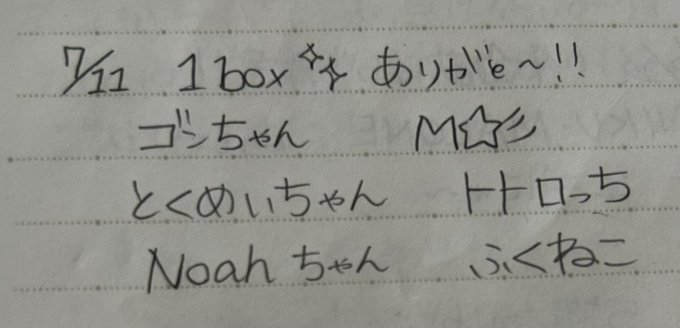 7/11 1box✨ ありがと〜!!
ゴンちゃん M☆彡
とくめいちゃん トトロっち
Noahちゃん ふくねこ